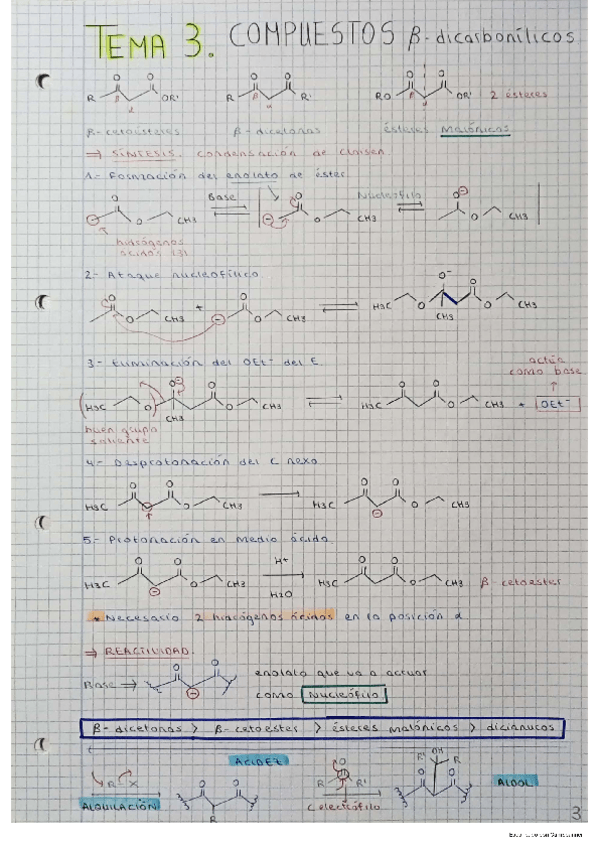 TEMA 3. COMPUESTOS β-dicarbonílicos
O O O O O O
R β α OR' R β α R' RO β α OR' 2 ésteres
β-cetoésteres β-dicetonas ésteres malónicos
⇒ SÍNTESIS. Condensación de Claisen
1.- Formación del enolato de éster
Base Nucleófilo
O CH3 O CH3 O CH3
hidrógenos
ácidos
2.- Ataque nucleofílico
O + O O⁻
O CH3 O CH3 H3C O O CH3
CH3
3.- Eliminación del OEt⁻ del E. actúa
como base
H3C O CH3 O CH3 H3C O CH3 + OEt⁻
buen grupo
saliente
4.- Desprotonación del C nexo
H3C O CH3 H3C O CH3
5.- Protonación en medio ácido.
H3C O CH3 H⁺ H2O H3C O CH3 β-cetoester
* Necesario 2 hidrógenos ácidos en la posición α
⇒ REACTIVIDAD.
Base → enolato que va a actuar
como Nucleófilo
β-dicetonas > β-cetoéster > ésteres malónicos > dicianucos
ACIDEZ
R-X O O R R' R' OH R
ALQUILACIÓN R electrófilo ALDOL
3